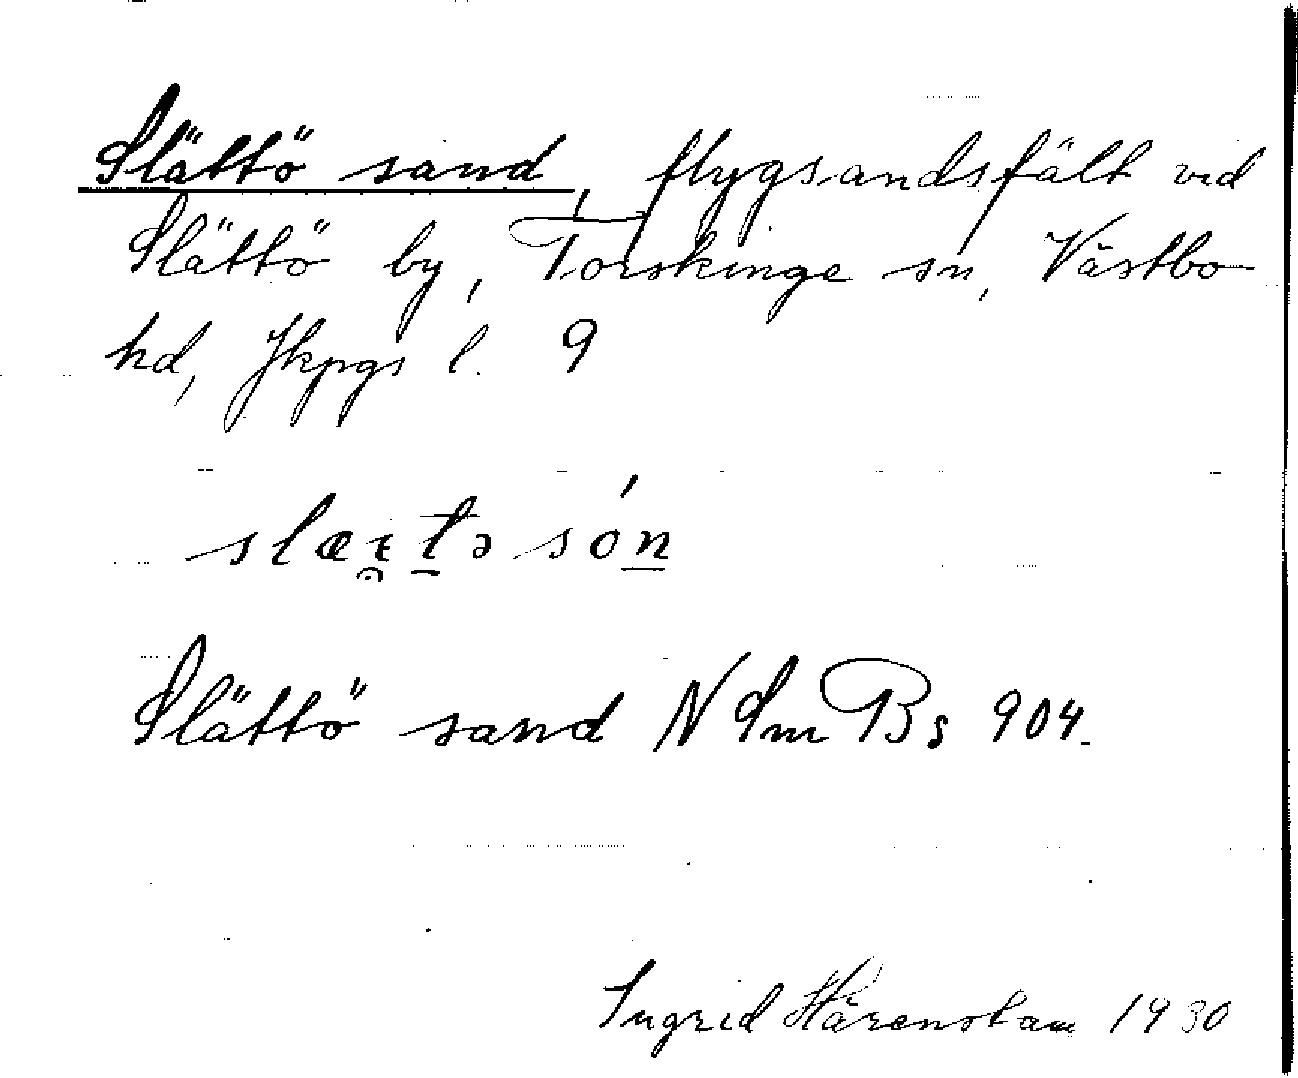 Slättö sand, flygsandsfält vid
Slättö by, Torskinge sn, Västbo
hd, Jkpgs l. 9
slæɛ̯tə són
Slättö sand N Sm Bs 904.
Ingrid Härenstam 1930